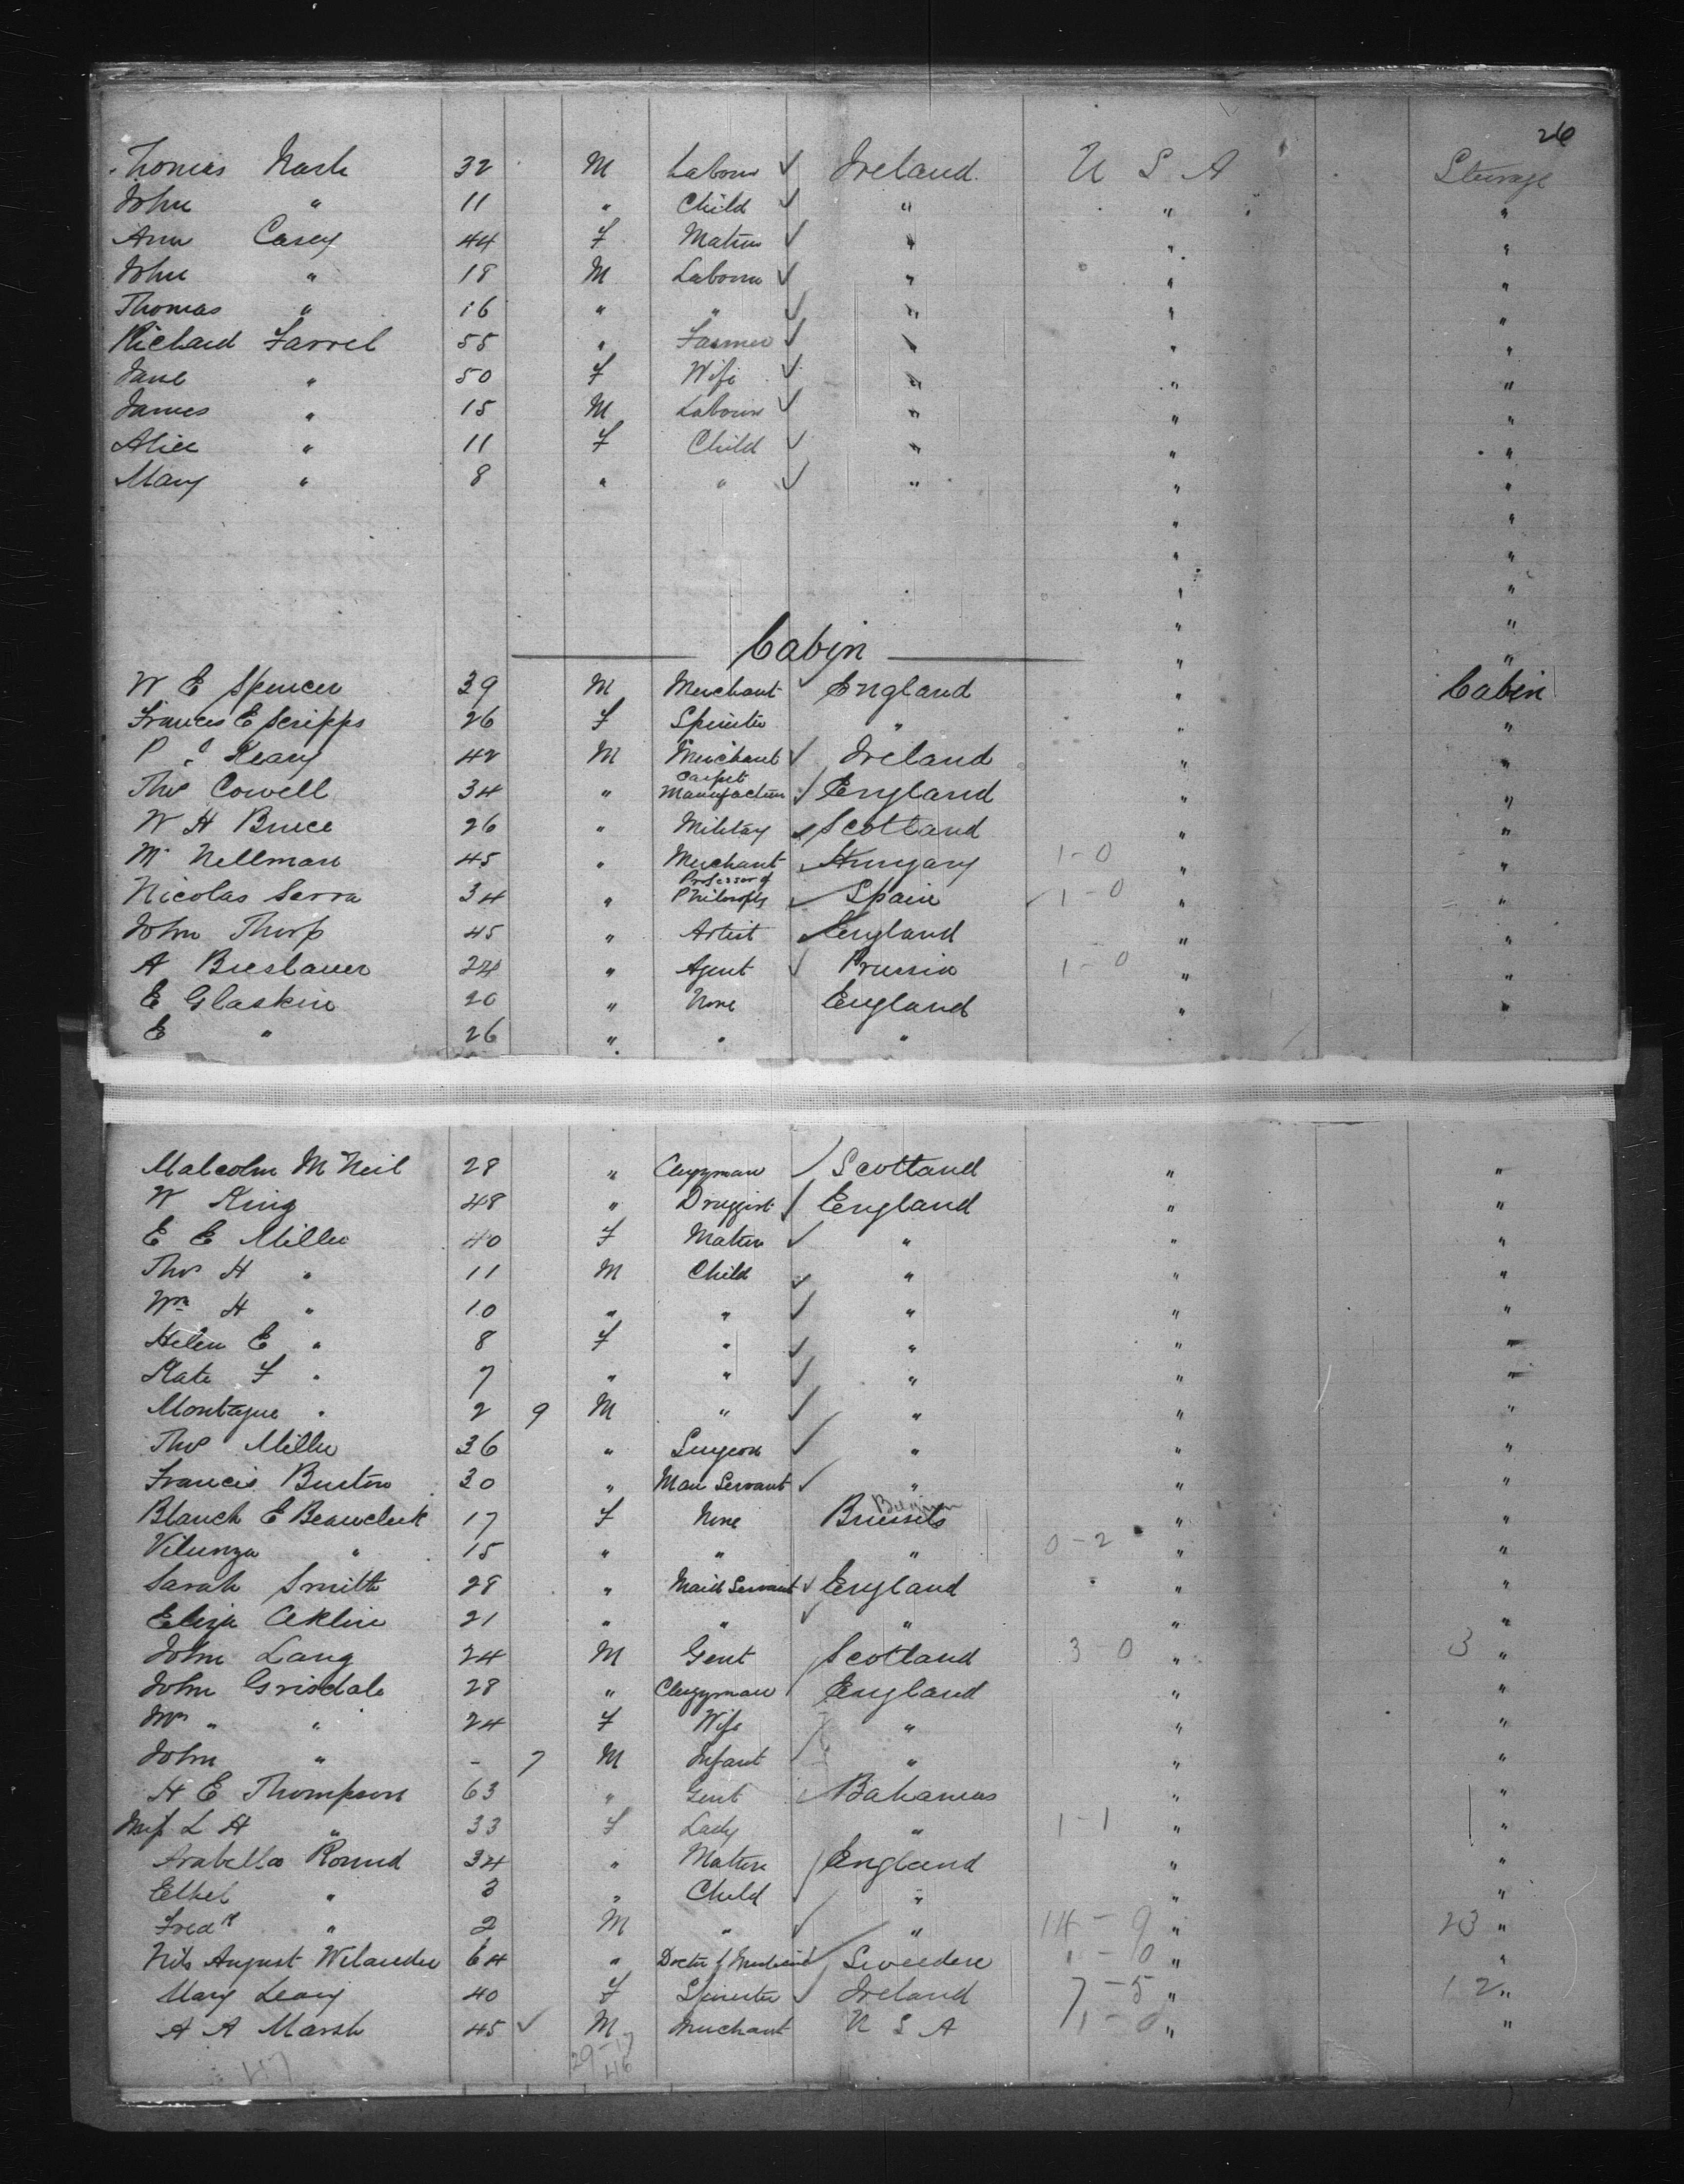 26
Thomas Nash 32 M Labour ✓ Ireland U S A Steerage
John " 11 " Child ✓ " " "
Ann Casey 44 F Matron ✓ " " "
John " 18 M Labourer ✓ " " "
Thomas " 16 " " ✓ " " "
Richard Farrel 55 " Farmer ✓ " " "
Jane " 50 F Wife ✓ " " "
James " 15 M Labourer ✓ " " "
Alice " 11 F Child ✓ " " "
Mary " 8 " " ✓ " " "
" "
" "
" "
" "
Cabin " "
W E Spencer 39 M Merchant ✓ England " Cabin
Frances E Scripps 26 F Spinster " " "
P Keary 42 M Merchant ✓ Ireland " "
Thos Cowell 34 " Carpet Manufacturer ✓ England " "
W H Bruce 26 " Military ✓ Scotland " "
M. Nellman 45 " Merchant ✓ Hungary 1-0 " "
Nicolas Serra 34 " Professor of Philosophy ✓ Spain ✓ 1-0 " "
John Thorp 45 " Artist ✓ England " "
A Breslauer 24 " Agent ✓ Prussia 1-0 " "
E Glaskin 20 " None England " "
E " 26 " " "
Malcolm McNeil 28 " Clergyman ✓ Scotland " "
W King 48 " Druggist ✓ England " "
E E Miller 40 F Matron ✓ " " "
Thos H " 11 M Child ✓ " " "
Wm H " 10 " " ✓ " " "
Helen E " 8 F " ✓ " " "
Kate F " 7 " " ✓ " " "
Montague " 2 9 M " ✓ " " "
Thos Miller 36 " Surgeon ✓ " " "
Francis Burton 30 " Man Servant ✓ " " "
Blanch E Beauclerk 17 F None Brussels Belgium " "
" 15 " " " 0-2 " "
Sarah Smith 28 " Maid Servant ✓ England " "
Eliza 21 " " ✓ " " "
John Lang 24 M Gent Scotland 3-0 " 3 "
John Grisdale 28 " Clergyman England " "
Mrs " " 24 F Wife " " "
John " - 7 M Infant " " "
H E Thompson 63 " Gent Bahamas " "
Miss L H " 33 F Lady " 1-1 " "
Arabella Round 34 " Matron England " "
Ethel " 3 " Child " " "
Fredk " 2 M " ✓ " 14-9 " 23 "
Nils August Wilander 64 " Doctor of Medicine Sweden 1-0 " "
Mary Leary 40 F Spinster ✓ Ireland 7-5 " 12 "
A A Marsh 45 ✓ M Merchant U S A "  "
29-17
46